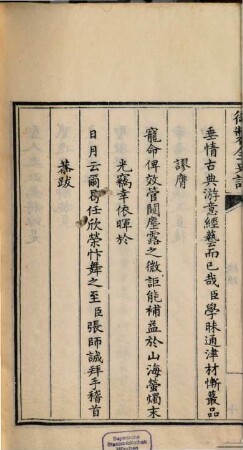 垂情古典游意經藝而已哉臣學昧通津材慚叢品
謬膺
寵命俾效管闚塵露之微詎能補益於山海螢燭末
光竊幸依暉於
日月云爾曷任欣榮忭舞之至臣張師誠拜手稽首
恭跋
Bayerische
Staatsbibliothek
München